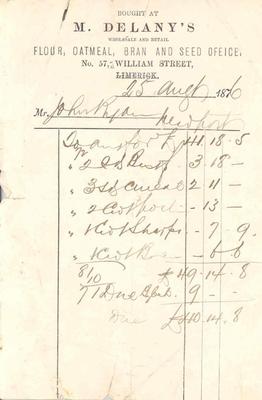 BOUGHT AT
M. DELANY'S
WHOLESALE AND RETAIL
FLOUR, OATMEAL, BRAN AND SEED OFFICE,
No. 57, WILLIAM STREET,
LIMERICK.
25 Augt 1876
Mr. John Ryan
Newport
To amt for £41. 18. 5
" 2 3. 18 —
" 3 2. 11 —
" 2 Cwt — 13 —
" 1 Cwt Sharps — 7 — 9.
" 1 Cwt Bran — 6 — 6
8/10 £49. 14. 8
7/ Due 9 —
Due £40. 14. 8